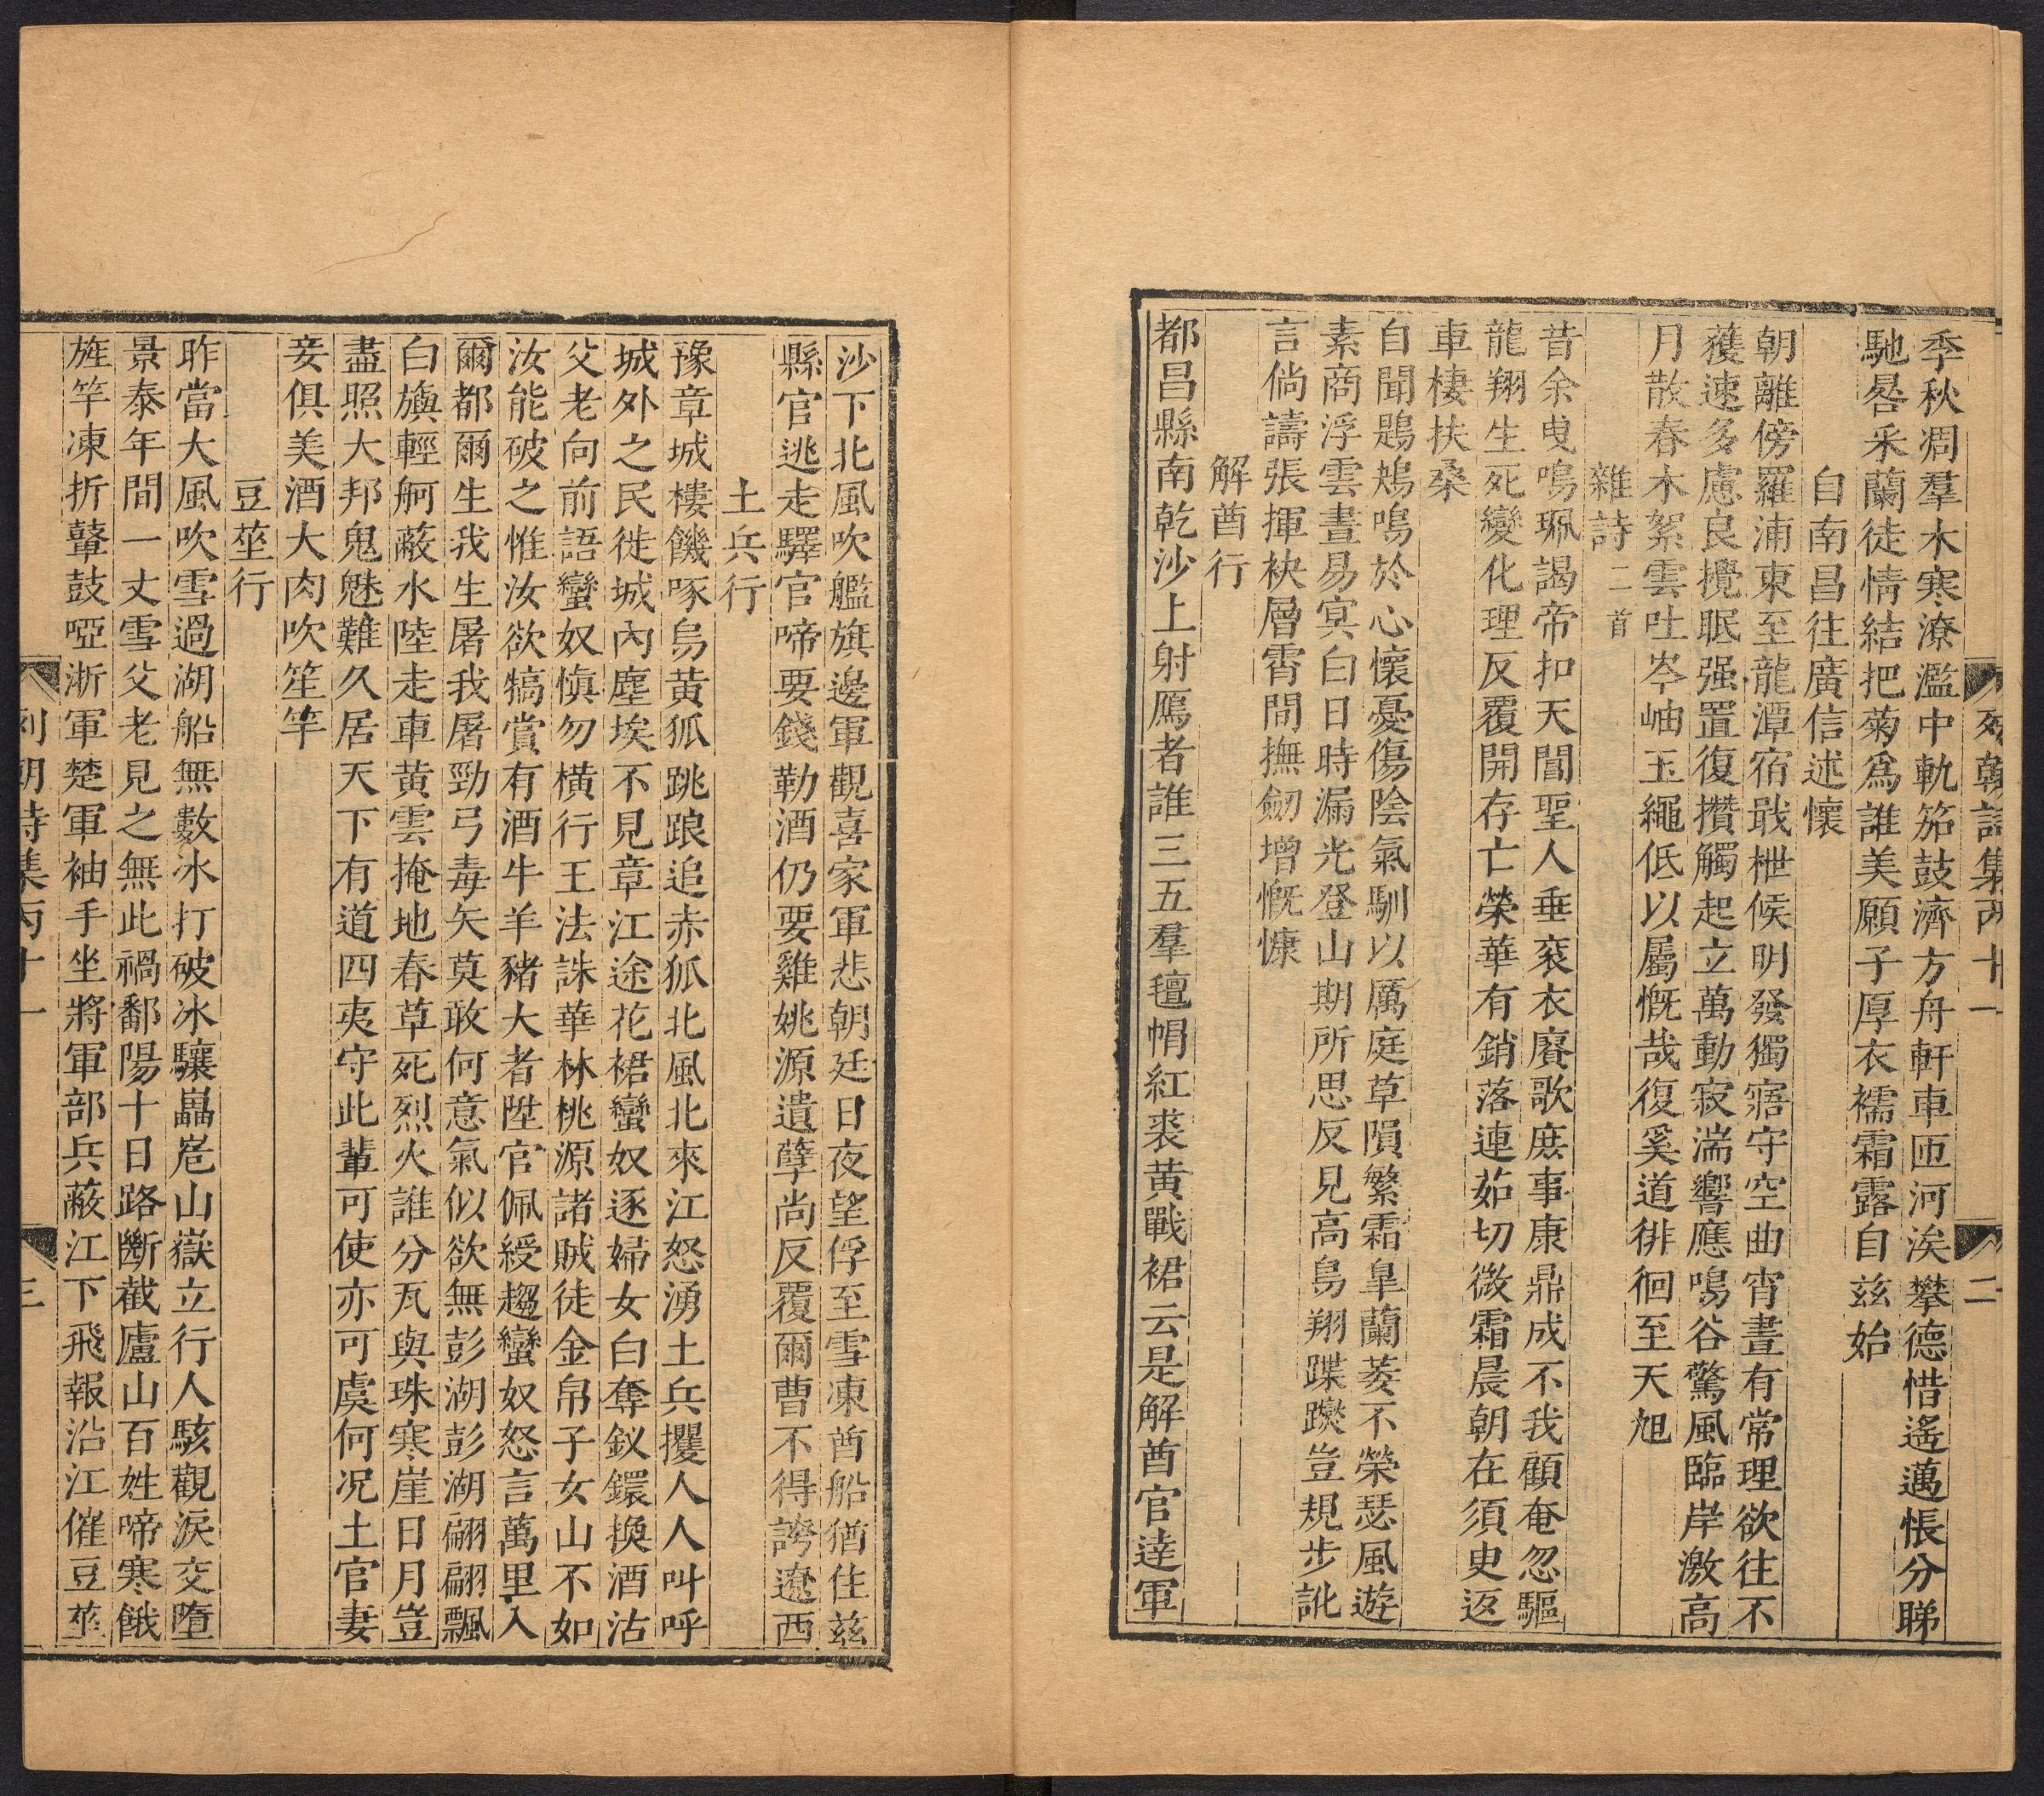 列朝詩集丙十一
二
季秋凋羣木寒潦濫中軌笳鼓濟方舟軒車匝河涘攀德惜遙邁悵分睇
馳晷采蘭徒情結把菊爲誰美願子厚衣襦霜露自兹始
自南昌往廣信述懷
朝離傍羅浦東至龍潭宿戢枻候明發獨寤守空曲宵晝有常理欲往不
獲速多慮良攪眠强置復攢觸起立萬動寂湍響應鳴谷驚風臨岸激高
月散春木絮雲吐岑岫玉繩低以屬慨哉復奚道徘徊至天旭
雜詩二首
昔余曳鳴珮謁帝扣天閽聖人垂袞衣賡歌庶事康鼎成不我顧奄忽驅
龍翔生死變化理反覆開存亡榮華有銷落連茹切微霜晨朝在須叟返
車棲扶桑
自聞鶗鴂鳴於心懷憂傷陰氣馴以厲庭草隕繁霜皐蘭萎不榮瑟風遊
素商浮雲晝易冥白日時漏光登山期所思反見高鳥翔蹀躞豈規步訛
言倘譸張揮袂層霄間撫劒增慨慷
解酋行
都昌縣南乾沙上射鴈者誰三五羣氊帽紅裘黃戰裙云是解酋官達軍
沙下北風吹艦旗邊軍觀喜家軍悲朝廷日夜望俘至雪凍酋船猶住兹
縣官逃走驛官啼要錢勒酒仍要雞姚源遺孽尚反覆爾曹不得誇遼西
土兵行
豫章城樓饑啄烏黃狐跳踉追赤狐北風北來江怒湧土兵攫人人叫呼
城外之民徙城內塵埃不見章江途花裙蠻奴逐婦女白奪釵鐶換酒沽
父老向前語蠻奴愼勿橫行王法誅華林桃源諸賊徒金帛子女山不如
汝能破之惟汝欲犒賞有酒牛羊豬大者陞官佩綬趨蠻奴怒言萬里入
爾都爾生我生屠我屠勁弓毒矢莫敢何意氣似欲無彭湖彭湖翩翩飄
白旟輕舸蔽水陸走車黃雲掩地春草死烈火誰分瓦與珠寒崖日月豈
盡照大邦鬼魅難久居天下有道四夷守此輩可使亦可虞何况土官妻
妾俱美酒大肉吹笙竽
豆莝行
昨當大風吹雪過湖船無數冰打破冰驤嵓嵬山嶽立行人駭觀淚交墮
景泰年間一丈雪父老見之無此禍鄱陽十日路斷截廬山百姓啼寒餓
旌竿凍折鼙鼓啞浙軍楚軍袖手坐將軍部兵蔽江下飛報沿江催豆莝
列朝詩集丙十一
三